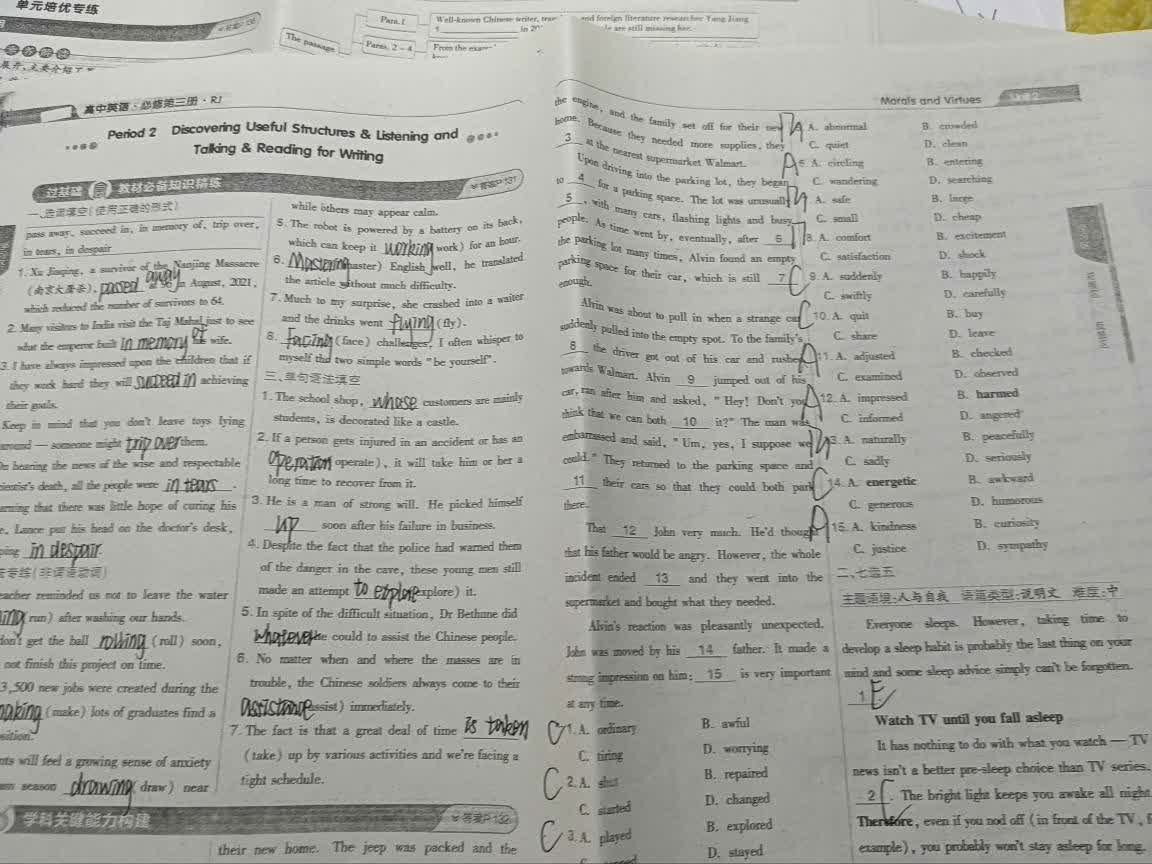 单元培优专练
Para. 1
Well-known Chinese writer,
and foreign literature researcher Yang Jiang
are still missing her.
The passage
Paras. 2-4
From the
高中英语·必修第三册·RJ
Period 2 Discovering Useful Structures & Listening and
Talking & Reading for Writing
过基础 教材必备知识精练
答案P131
一、选词填空(使用正确的形式)
pass away, succeed in, in memory of, trip over,
in tears, in despair
1. Xu Jiaqing, a survivor of the Nanjing Massacre
(南京大屠杀), passed away at 96 in August, 2021,
which reduced the number of survivors to 64.
2. Many visitors to India visit the Taj Mahal just to see
what the emperor built in memory of his wife.
3. I have always impressed upon the children that if
they work hard they will succeed in achieving
their goals.
Keep in mind that you don't leave toys lying
around — someone might trip over them.
On hearing the news of the wise and respectable
scientist's death, all the people were in tears.
that there was little hope of curing his
Lance put his head on the doctor's desk,
in despair
专练(非谓语动词)
teacher reminded us not to leave the water
(run) after washing our hands.
don't get the ball rolling (roll) soon,
not finish this project on time.
3,500 new jobs were created during the
making (make) lots of graduates find a
position.
will feel a growing sense of anxiety
season drawing (draw) near
学科关键能力构建
答案P132
while others may appear calm.
5. The robot is powered by a battery on its back,
which can keep it working (work) for an hour.
6. Mastering (master) English well, he translated
the article without much difficulty.
7. Much to my surprise, she crashed into a waiter
and the drinks went flying (fly).
8. Facing (face) challenges, I often whisper to
myself the two simple words "be yourself".
三、单句语法填空
1. The school shop, whose customers are mainly
students, is decorated like a castle.
2. If a person gets injured in an accident or has an
operation (operate), it will take him or her a
long time to recover from it.
3. He is a man of strong will. He picked himself
up soon after his failure in business.
4. Despite the fact that the police had warned them
of the danger in the cave, these young men still
made an attempt to explore (explore) it.
5. In spite of the difficult situation, Dr Bethune did
whatever he could to assist the Chinese people.
6. No matter when and where the masses are in
trouble, the Chinese soldiers always come to their
assistance (assist) immediately.
7. The fact is that a great deal of time is taken
(take) up by various activities and we're facing a
tight schedule.
their new home. The jeep was packed and the
Morals and Virtues
the engine, and the family set off for their new
home. Because they needed more supplies, they
3 at the nearest supermarket Walmart.
Upon driving into the parking lot, they began
to 4 for a parking space. The lot was unusually
5, with many cars, flashing lights and busy
people. As time went by, eventually, after 6
the parking lot many times, Alvin found an empty
parking space for their car, which is still 7
enough.
Alvin was about to pull in when a strange car
suddenly pulled into the empty spot. To the family's
8 the driver got out of his car and rushed
towards Walmart. Alvin 9 jumped out of his
car, ran after him and asked, "Hey! Don't you
think that we can both 10 it?" The man was
embarrassed and said, "Um, yes, I suppose we
could." They returned to the parking space and
11 their cars so that they could both park
there.
That 12 John very much. He'd thought
that his father would be angry. However, the whole
incident ended 13 and they went into the
supermarket and bought what they needed.
Alvin's reaction was pleasantly unexpected.
John was moved by his 14 father. It made a
strong impression on him: 15 is very important
at any time.
C 1. A. ordinary B. awful
C. tiring D. worrying
C 2. A. shut B. repaired
C. started D. changed
C 3. A. played B. explored
D. stayed
A. abnormal B. crowded
C. quiet D. clean
A 6. A. circling B. entering
C. wandering D. searching
A. safe B. large
C. small D. cheap
8. A. comfort B. excitement
C. satisfaction D. shock
9. A. suddenly B. happily
C. swiftly D. carefully
C 10. A. quit B. buy
C. share D. leave
A 11. A. adjusted B. checked
C. examined D. observed
A 12. A. impressed B. harmed
C. informed D. angered
3. A. naturally B. peacefully
C. sadly D. seriously
C 14. A. energetic B. awkward
C. generous D. humorous
A 15. A. kindness B. curiosity
C. justice D. sympathy
二、七选五
主题语境:人与自我 语篇类型:说明文 难度:中
Everyone sleeps. However, taking time to
develop a sleep habit is probably the last thing on your
mind and some sleep advice simply can't be forgotten.
1 E
Watch TV until you fall asleep
It has nothing to do with what you watch — TV
news isn't a better pre-sleep choice than TV series.
2. The bright light keeps you awake all night.
Therefore, even if you nod off (in front of the TV, f
example), you probably won't stay asleep for long.